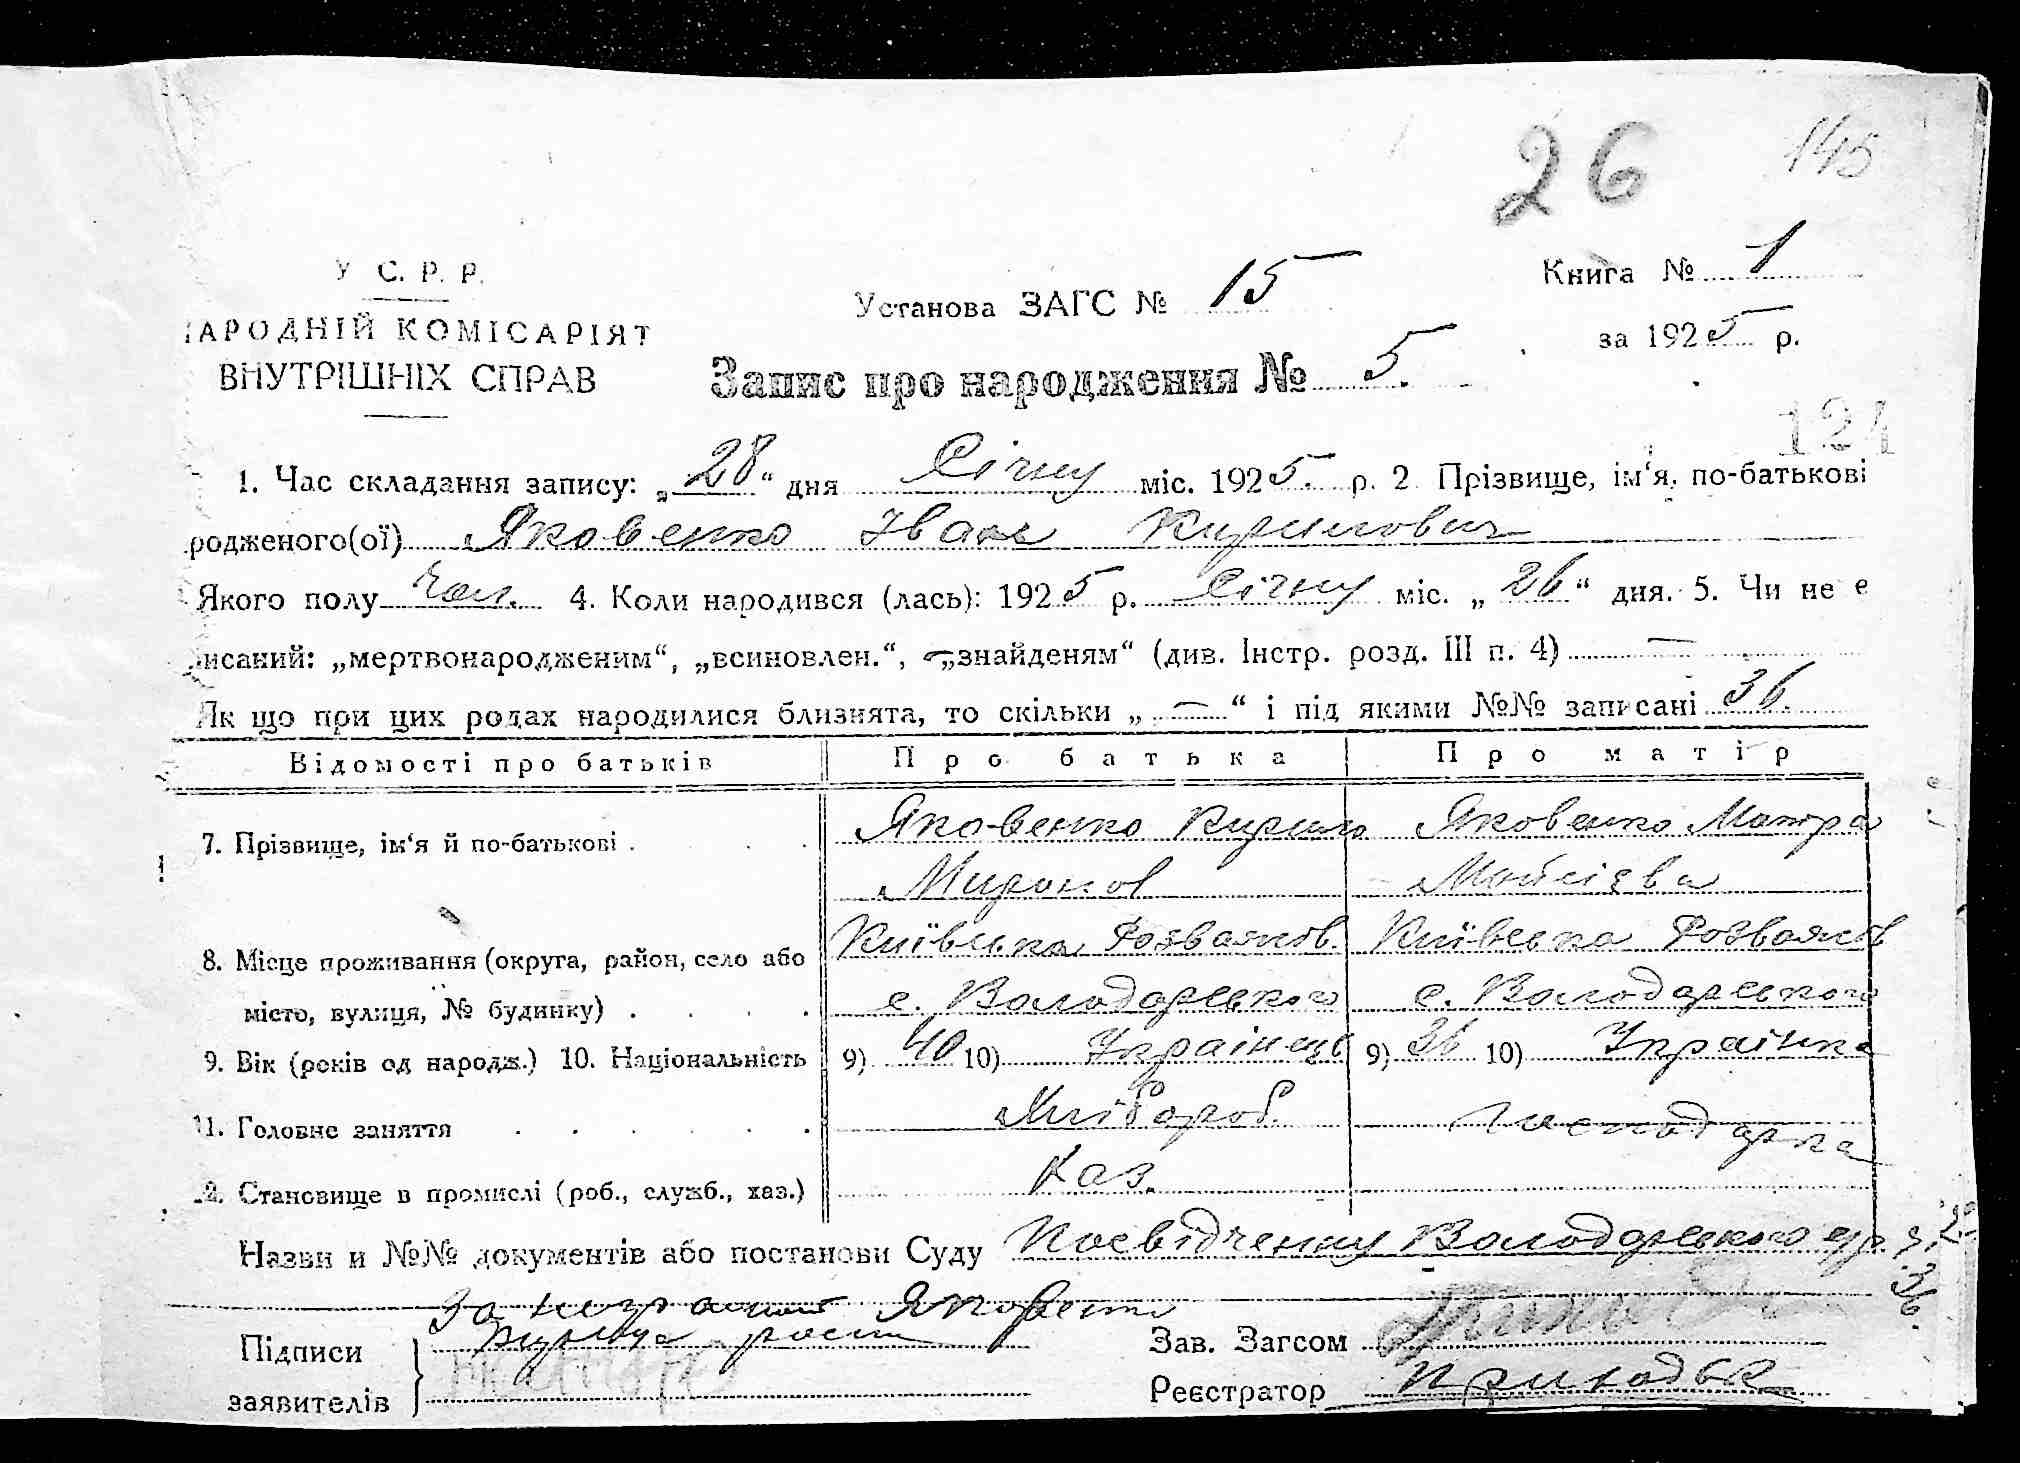 26 145
У С. Р. Р.
НАРОДНІЙ КОМІСАРІЯТ
ВНУТРІШНІХ СПРАВ
Установа ЗАГС № 15
Книга № 1
за 1925 р.
Запис про народження № 5.
124
1. Час складання запису: „28“ дня Січня міс. 1925. р. 2 Прізвище, ім‘я, по-батькові
родженого(ої) Яковенко Іван Кирилович
Якого полу Чол. 4. Коли народився (лась): 1925 р. Січня міс. „26“ дня. 5. Чи не е
писаний: „мертвонародженим“, „всиновлен.“, „знайденям“ (див. Інстр. розд. III п. 4) —
Як що при цих родах народилися близнята, то скільки „—“ і під якими №№ записані 36.
Відомості про батьків Про батька Про матір
7. Прізвище, ім‘я й по-батькові . . . Яковенко Кирило Яковенко Мотря
Миронов Мойсієва
8. Місце проживання (округа, район, село або Київська Розважів. Київська Розважів
місто, вулиця, № будинку) . . . . с. Володарського с. Володарського
9. Вік (років од народж.) 10. Національність 9) 40 10) Українець 9) 36 10) Українка
11. Головне заняття . . . . . . Хлібороб. Господарка
2. Становище в промислі (роб., служб., хаз.) Хаз.
Назви и №№ документів або постанови Суду Посвідчення Володарського 
За неграмот Яковенко
Підписи Кирила росп Зав. Загсом
заявителів Реєстратор Приходько